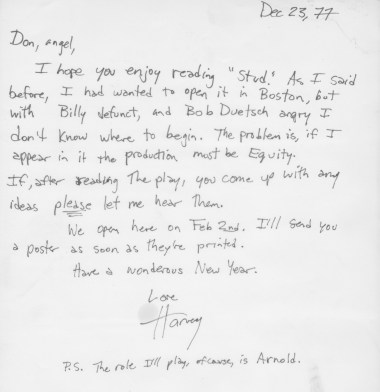 Dec 23, 77
Don, angel,
I hope you enjoy reading "Stud." As I said
before, I had wanted to open it in Boston, but
with Billy defunct, and Bob Duetsch angry I
don't know where to begin. The problem is, if I
appear in it the production must be Equity.
If, after reading the play, you come up with any
ideas please let me hear them.
We open here on Feb 2nd. I'll send you
a poster as soon as they're printed.
Have a wonderous New Year.
Love
Harvey
P.S. The role I'll play, of course, is Arnold.